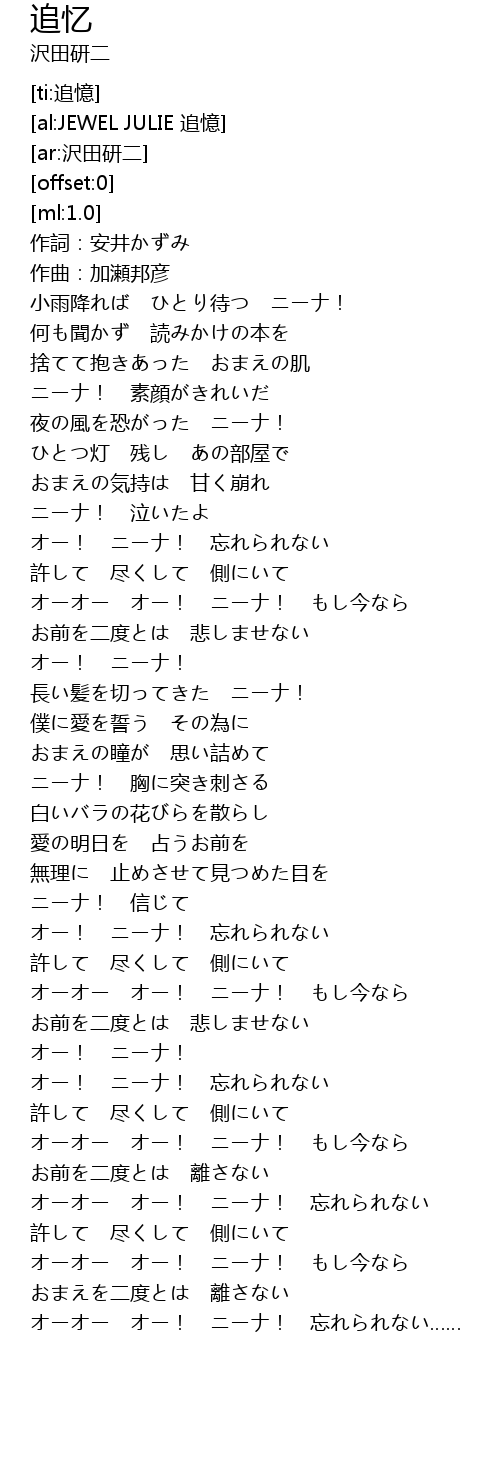 追忆
沢田研二
[ti:追憶]
[al:JEWEL JULIE 追憶]
[ar:沢田研二]
[offset:0]
[ml:1.0]
作詞：安井かずみ
作曲：加瀬邦彦
小雨降れば　ひとり待つ　ニーナ！
何も聞かず　読みかけの本を
捨てて抱きあった　おまえの肌
ニーナ！　素顔がきれいだ
夜の風を恐がった　ニーナ！
ひとつ灯　残し　あの部屋で
おまえの気持は　甘く崩れ
ニーナ！　泣いたよ
オー！　ニーナ！　忘れられない
許して　尽くして　側にいて
オーオー　オー！　ニーナ！　もし今なら
お前を二度とは　悲しませない
オー！　ニーナ！
長い髪を切ってきた　ニーナ！
僕に愛を誓う　その為に
おまえの瞳が　思い詰めて
ニーナ！　胸に突き刺さる
白いバラの花びらを散らし
愛の明日を　占うお前を
無理に　止めさせて見つめた目を
ニーナ！　信じて
オー！　ニーナ！　忘れられない
許して　尽くして　側にいて
オーオー　オー！　ニーナ！　もし今なら
お前を二度とは　悲しませない
オー！　ニーナ！
オー！　ニーナ！　忘れられない
許して　尽くして　側にいて
オーオー　オー！　ニーナ！　もし今なら
お前を二度とは　離さない
オーオー　オー！　ニーナ！　忘れられない
許して　尽くして　側にいて
オーオー　オー！　ニーナ！　もし今なら
おまえを二度とは　離さない
オーオー　オー！　ニーナ！　忘れられない……